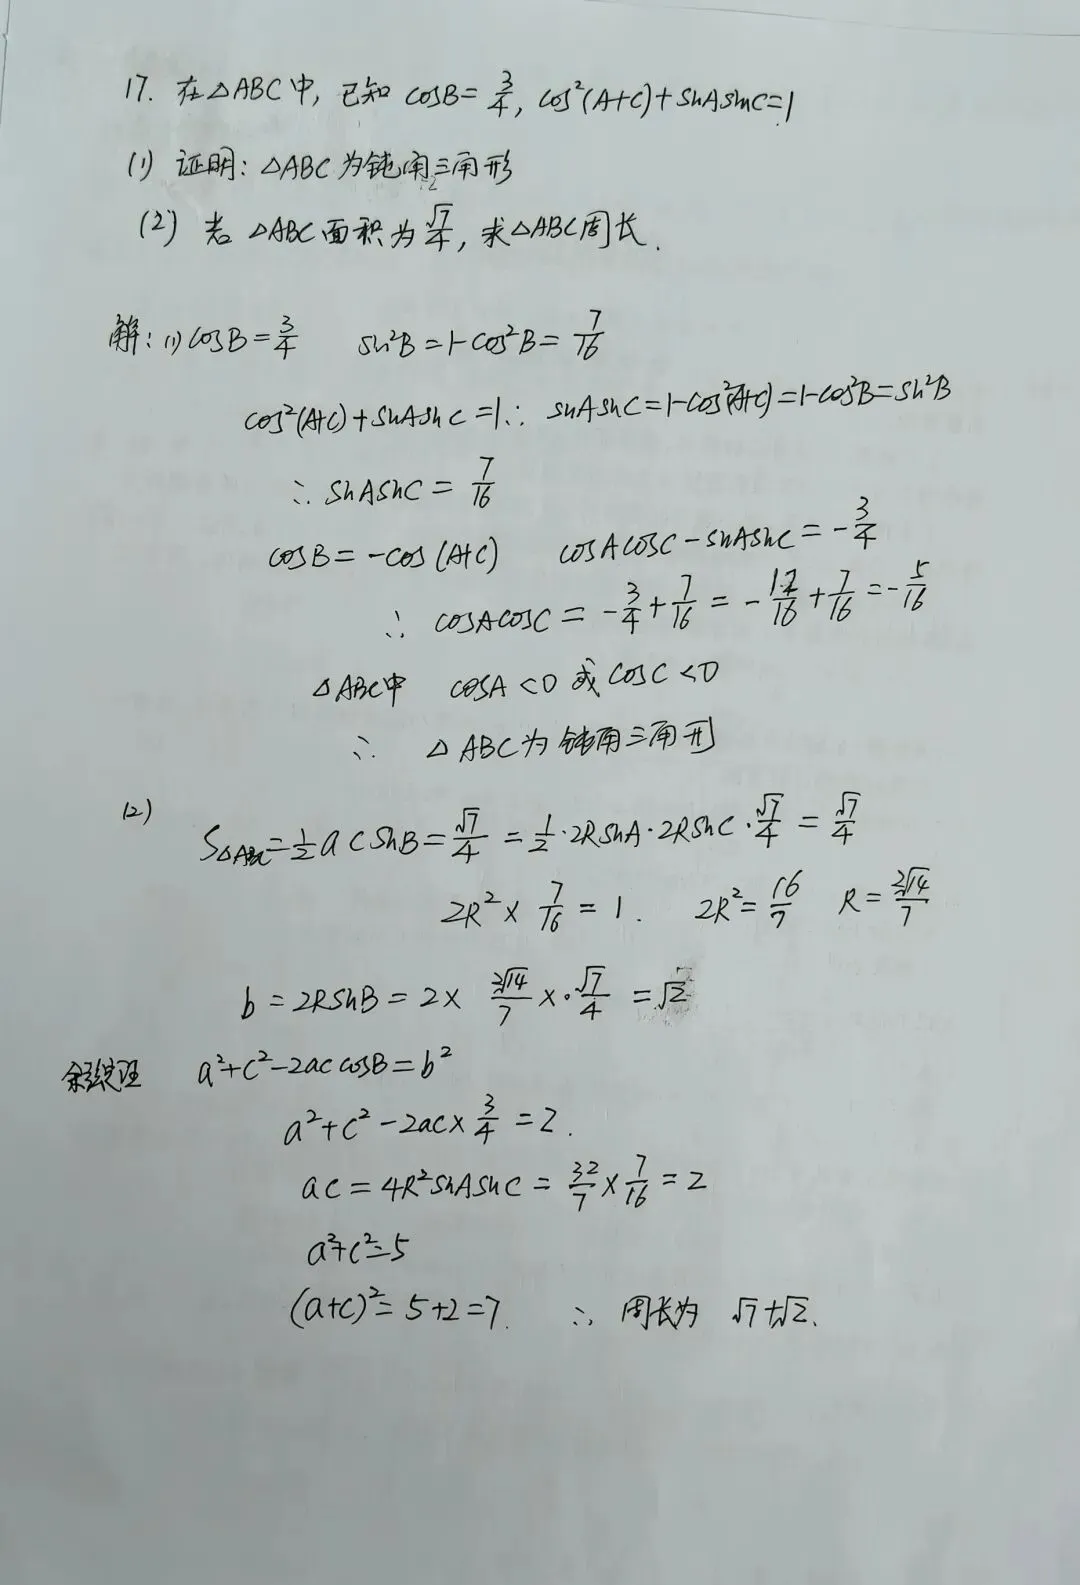 17. 在△ABC中, 已知 cosB=3/4, cos²(A+C)+sinAsinC=1
(1) 证明: △ABC为钝角三角形
(2) 若△ABC面积为√7/4, 求△ABC周长.
解: (1) cosB=3/4 sin²B=1-cos²B=7/16
cos²(A+C)+sinAsinC=1 ∴ sinAsinC=1-cos²(A+C)=1-cos²B=sin²B
∴ sinAsinC=7/16
cosB=-cos(A+C) cosAcosC-sinAsinC=-3/4
∴ cosAcosC=-3/4+7/16=-12/16+7/16=-5/16
△ABC中 cosA<0 或 cosC<0
∴ △ABC为钝角三角形
(2) S△ABC=1/2acsinB=√7/4=1/2·2RsinA·2RsinC·√7/4=√7/4
2R²×7/16=1. 2R²=16/7 R=2√14/7
b=2RsinB=2×2√14/7×·√7/4=√2
余弦定理 a²+c²-2accosB=b²
a²+c²-2ac×3/4=2.
ac=4R²sinAsinC=32/7×7/16=2
a²+c²=5
(a+c)²=5+2=7. ∴ 周长为 √7+√2.